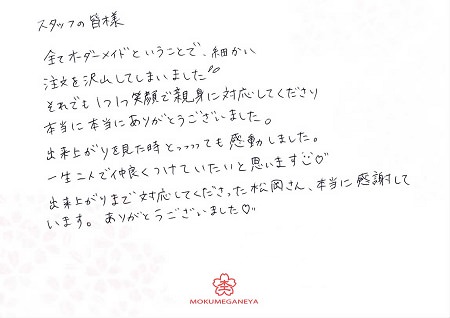 スタッフの皆様
全てオーダーメイドということで、細かい
注文を沢山してしまいました
それでも1つ1つ笑顔で親身に対応してくださり
本当に本当にありがとうございました。
出来上がりを見た時とっっっても感動しました。
一生二人で仲良くつけていたいと思います☺♡
出来上がりまで対応してくださった松岡さん、本当に感謝して
います。ありがとうございました♡
MOKUMEGANEYA